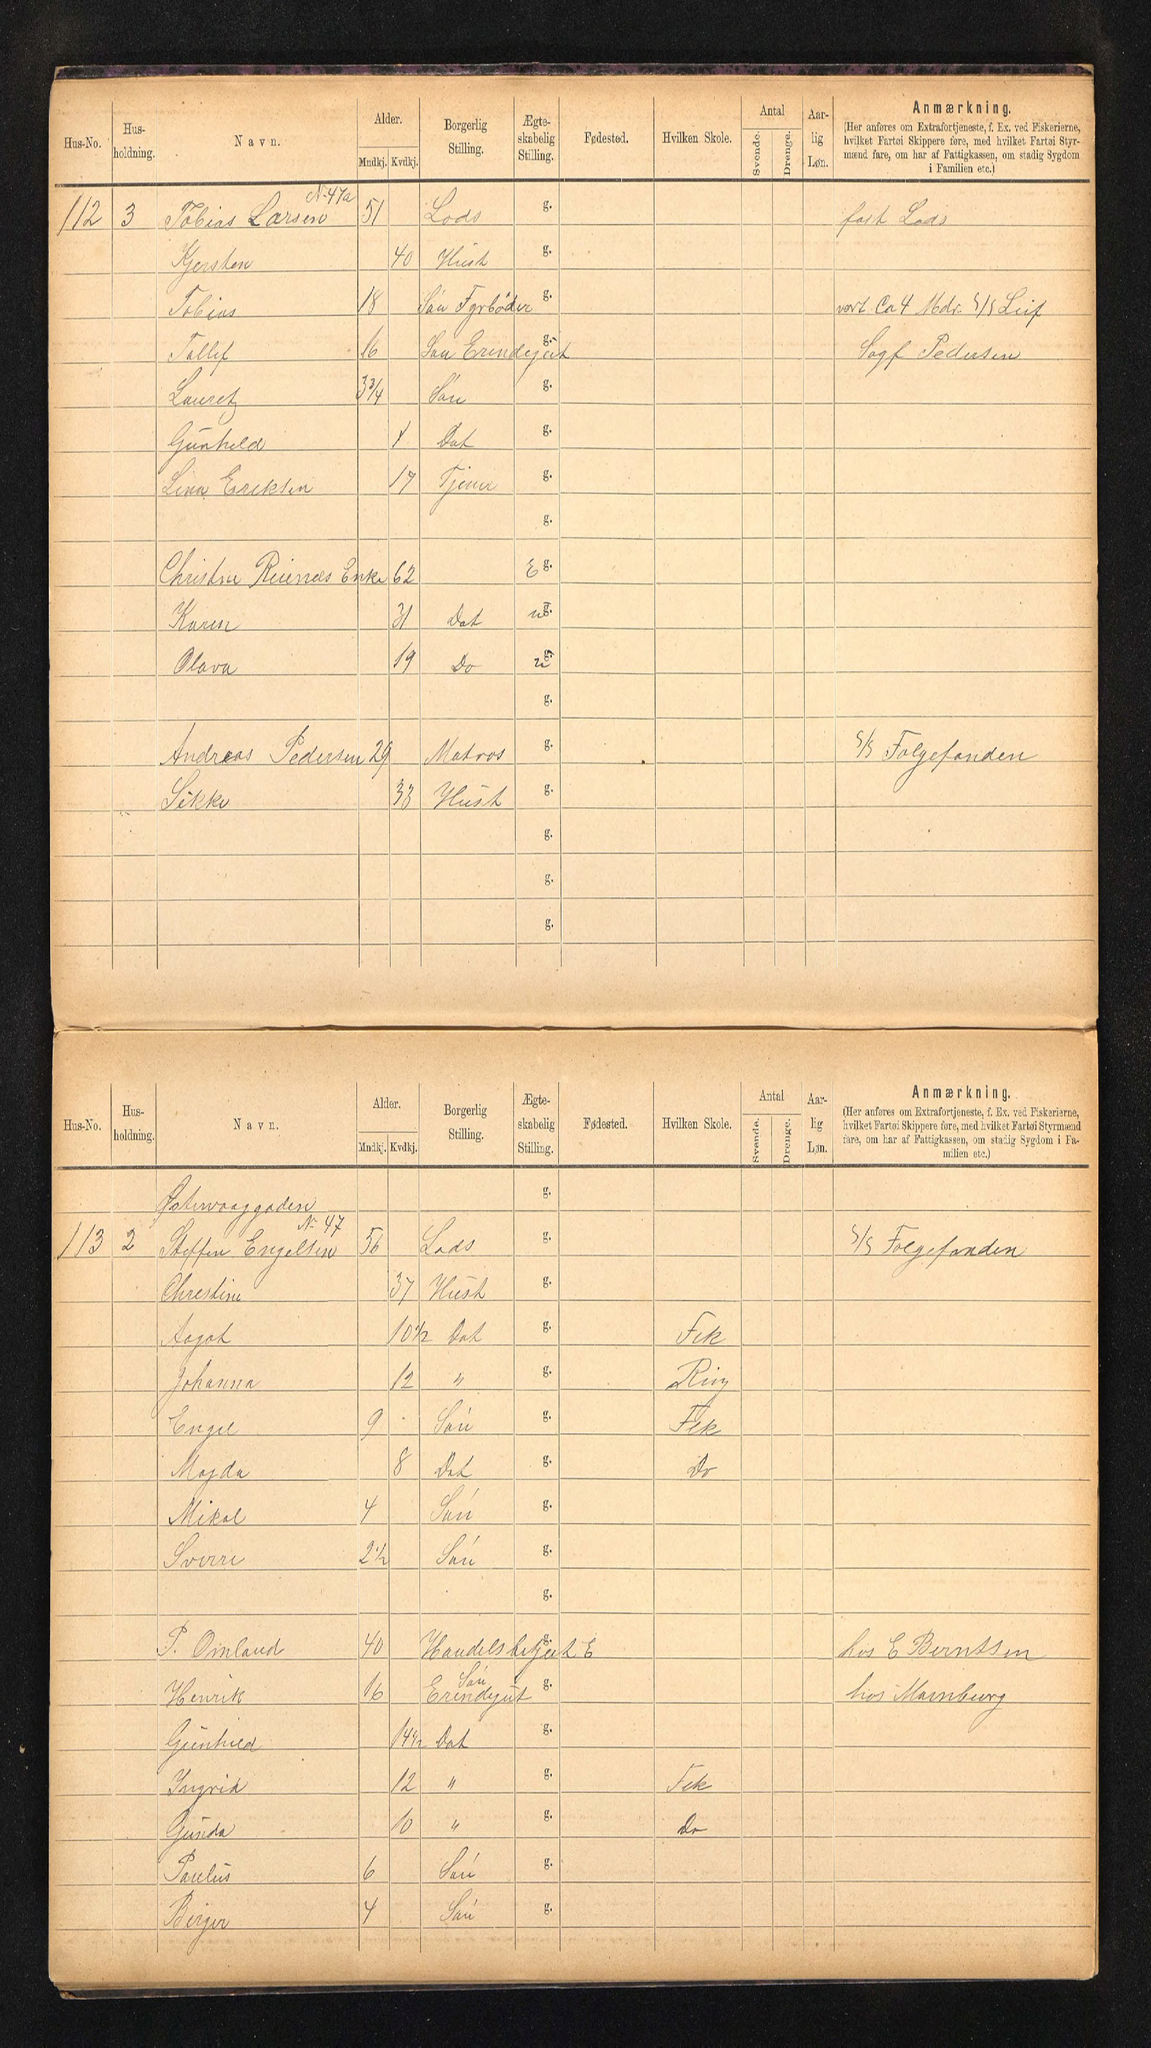 Hus-No. Hus-holdning. Navn. Alder. Mndkj. Kvdkj. Borgerlig Stilling. Ægte-skabelig Stilling. Fødested. Hvilken Skole. Antal Svende. Drenge. Aar-lig Løn. Anmærkning.
(Her anføres om Extrafortjeneste, f. Ex. ved Fiskerierne, hvilket Fartøi Skippere føre, med hvilket Fartøi Styrmænd fare, om har af Fattigkassen, om stadig Sygdom i Familien etc.)
N. 47a
112 3 Tobias Larsen 51 Lods g. fast Lods
Kjersten 40 Hust g.
Tobias 18 Søn Fyrbøder g. vært Ca 4 Mdr. S/S Leif
Tallef 16 Søn Erendsgut g. Sagf Pedersen
Lauretz 3 3/4 Søn g.
Gunhild 1 Dat g.
Lina Eriksen 17 Tjener g.
g.
Christine Enke 62 E g.
Karen 31 Dat u g.
Olava 19 Do u g.
g.
Andreas Pedersen 29 Matros g. S/S Folgefonden
Sikke 33 Hust g.
g.
g.
g.
Hus-No. Hus-holdning. Navn. Alder. Mndkj. Kvdkj. Borgerlig Stilling. Ægte-skabelig Stilling. Fødested. Hvilken Skole. Antal Svende. Drenge. Aar-lig Løn. Anmærkning.
(Her anføres om Extrafortjeneste, f. Ex. ved Fiskerierne, hvilket Fartøi Skippere føre, med hvilket Fartøi Styrmænd fare, om har af Fattigkassen, om stadig Sygdom i Familien etc.)
Østervaaggaden g.
N. 47
113 2 Steffen Engelsen 56 Lods g. S/S Folgefonden
Christine 37 Hust g.
Aagot 10 1/2 Dat g. Fik
Johanna 12 " g. Ring
Engel 9 Søn g. Fik
Magda 8 Dat g. Do
Mikal 4 Søn g.
Sverre 2 1/2 Søn g.
g.
P. Omland 40 Handelsbetjent E g. hos E Berntsen
Henrik 16 Søn Erendsgut g. hos
Gunhild 14 1/2 Dat g.
Ingrid 12 " g. Fik
Gunda 10 " g. Do
Paulus 6 Søn g.
Birger 4 Søn g.